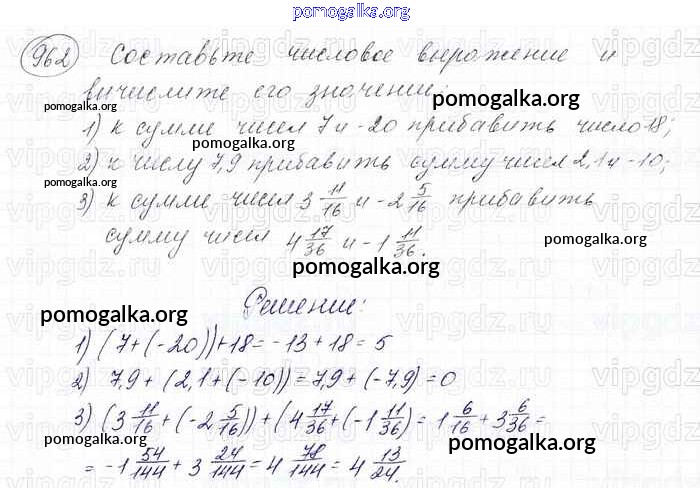 pomogalka.org
962 Составьте числовое выражение и
вычислите его значение:
pomogalka.org
pomogalka.org
1) к сумме чисел 7 и -20 прибавить число 18;
2) к числу 7,9 прибавить сумму чисел 2,1 и -10;
pomogalka.org
3) к сумме чисел 3 11/16 и -2 5/16 прибавить
сумму чисел 4 17/36 и -1 11/36.
pomogalka.org
pomogalka.org
Решение:
pomogalka.org
1) (7+(-20))+18=-13+18=5
2) 7,9+(2,1+(-10))=7,9+(-7,9)=0
pomogalka.org
3) (3 11/16+(-2 5/16))+(4 17/36+(-1 11/36)=1 6/16+3 6/36=
pomogalka.org
=-1 54/144+3 24/144=4 78/144=4 13/24.
pomogalka.org
pomogalka.org